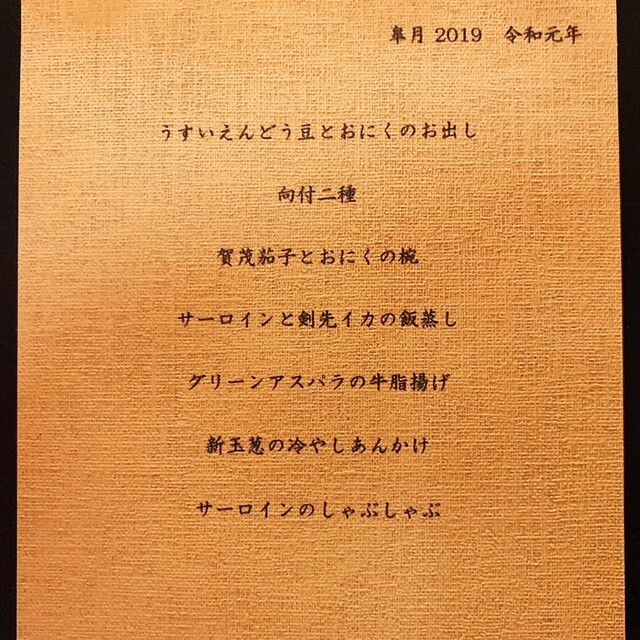 皐月 2019　令和元年
うすいえんどう豆とおにくのお出し
向付二種
賀茂茄子とおにくの椀
サーロインと剣先イカの飯蒸し
グリーンアスパラの牛脂揚げ
新玉葱の冷やしあんかけ
サーロインのしゃぶしゃぶ